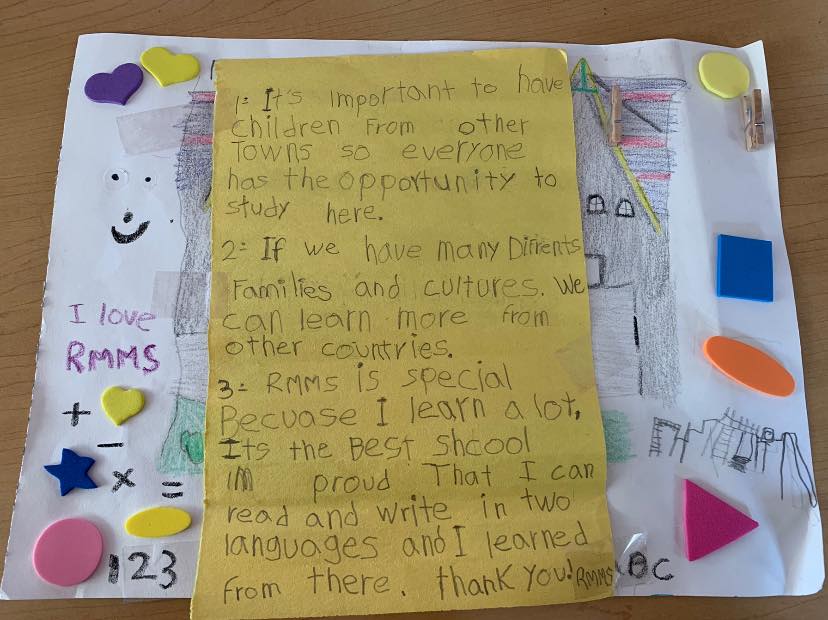 1= It's important to have
children from other
Towns so everyone
has the opportunity to
study here.
2= If we have many Difrents
Families and cultures. We
can learn more from
other countries.
3= RMMS is special
Becuase I learn a lot,
Its the Best shcool
im proud That I can
read and write in two
languages and I learned
from there. thank you! RMMS
I love
RMMS
+
-
x =
123
ABC